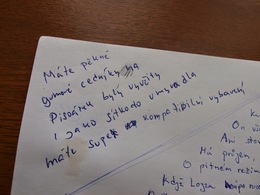 Máte pěkné
gumové cedníky na
Pisoáru byly využity
i jako sítko do umyvadla
máte super kompatibilní vybavení
K
On v
Ani sto
Má průjem,
O pitném reži
Když Logza